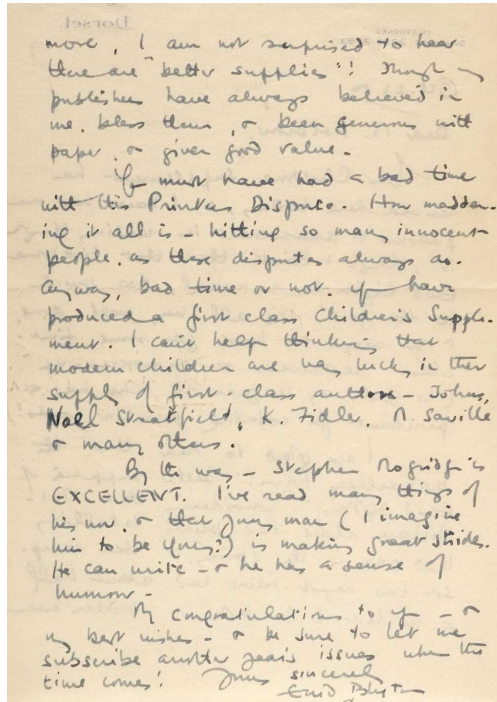 Dorset
more, I am not surprised to hear
there are "better supplies"! Though my
publishers have always believed in
me, bless them, & been generous with
paper, & given good value.
You must have had a bad time
with this Printers Dispute. How madden-
ing it all is - hitting so many innocent
people, as these disputes always do.
Anyway, bad time or not, you have
produced a first class Children's Supple-
ment. I can't help thinking that
modern children are very lucky in their
supply of first-class authors - Johns,
Noel Streatfield, K. Fidler, M. Saville
& many others.
By the way - Stephen Mogridge is
EXCELLENT. I've read many things of
his now, & that young man (I imagine
him to be young?) is making great strides.
He can write - & he has a sense of
humour -
My congratulations to you - &
my best wishes - & be sure to let me
subscribe another year's issues when the
time comes!
Yours sincerely
Enid Blyton